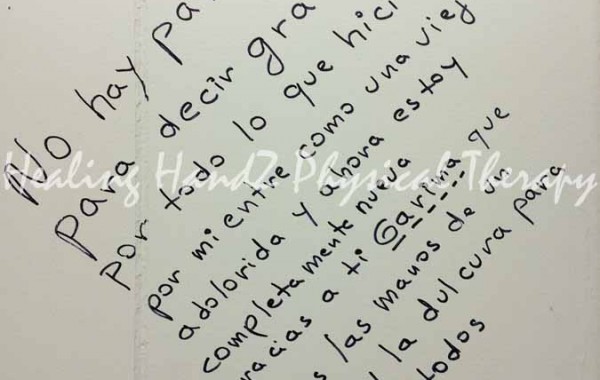 No hay pa
para decir gra
por todo lo que hici
por mi entre como una viej
adolorida y ahora estoy
completamente nueva
racias a ti Garima que
s las manos de un
la dulcura para
todos
Healing HandZ Physical Therapy